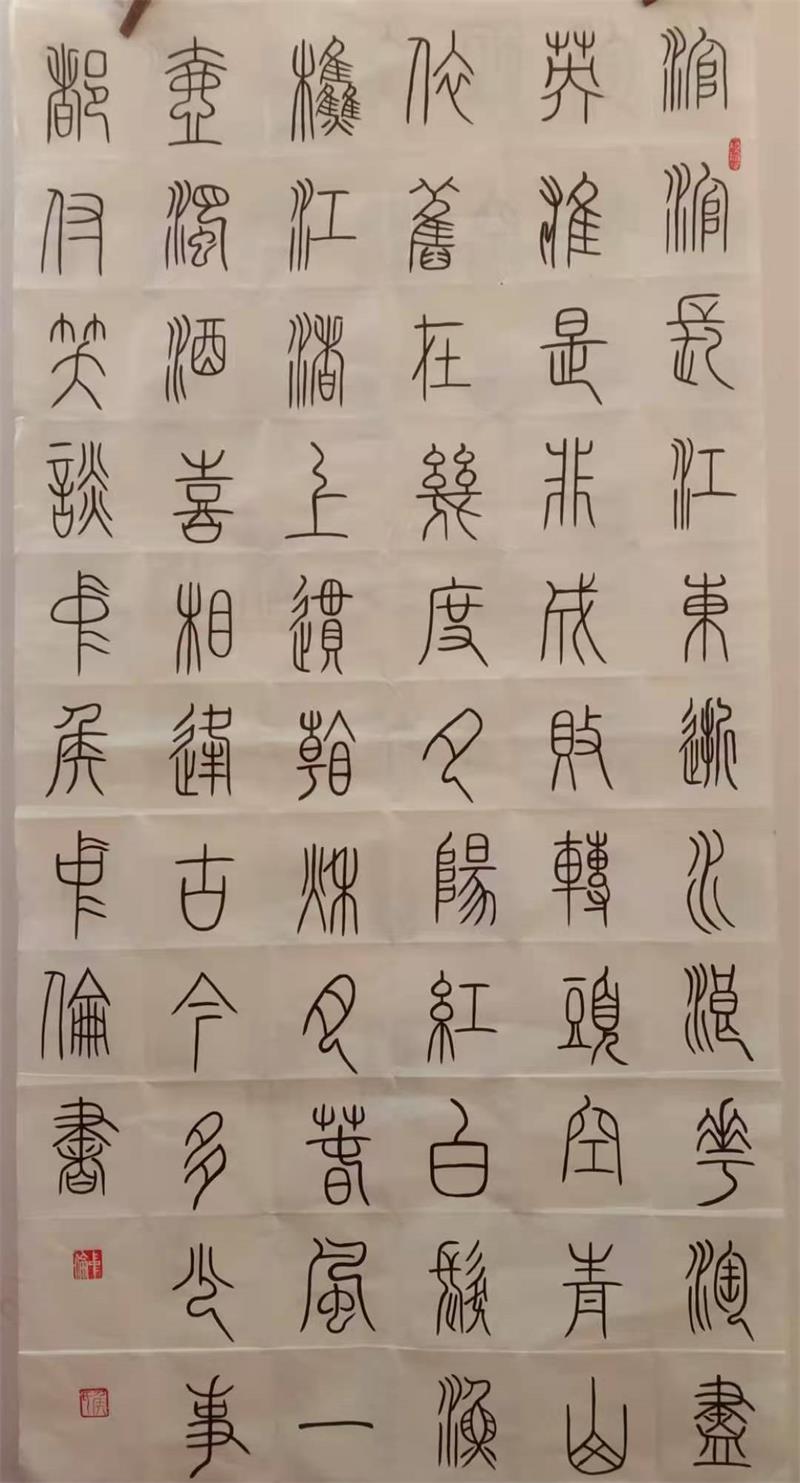 滾滾長江東逝水浪花淘盡
英雄是非成敗轉頭空青山
依舊在幾度夕陽紅白髮漁
樵江渚上慣看秋月春風一
壺濁酒喜相逢古今多少事
都付笑談中侯中倫書